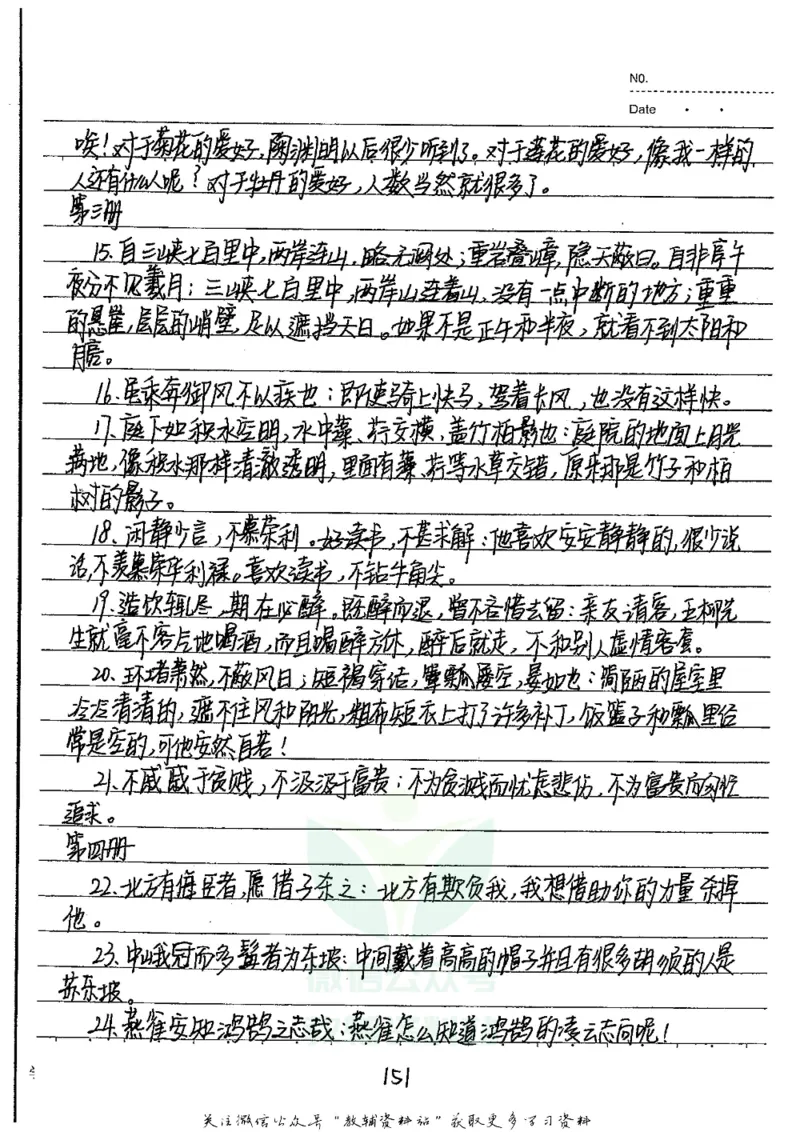 NO.
Date
唉！对于菊花的爱好，陶渊明以后很少听到了。对于莲花的爱好，像我一样的
人还有什么人呢？对于牡丹的爱好，人数当然就很多了。
第三册
15、自三峡七百里中，两岸连山，略无阙处；重岩叠嶂，隐天蔽日。自非亭午
夜分不见曦月：三峡七百里中，两岸山连着山，没有一点中断的地方；重重
的悬崖，层层的峭壁，足以遮挡天日。如果不是正午和半夜，就看不到太阳和
月亮。
16、虽乘奔御风不以疾也：即使骑上快马，驾着长风，也没有这样快。
17、庭下如积水空明，水中藻、荇交横，盖竹柏影也：庭院的地面上月光
满地，像积水那样清澈透明，里面有藻、荇等水草交错，原来那是竹子和柏
树的影子。
18、闲静少言，不慕荣利。好读书，不甚求解：他喜欢安安静静的，很少说
话，不羡慕荣华利禄。喜欢读书，不钻牛角尖。
19、造饮辄尽，期在必醉。既醉而退，曾不吝情去留：亲友请客，五柳先
生就毫不客气地喝酒，而且喝醉方休，醉后就走，不和别人虚情客套。
20、环堵萧然，不蔽风日；短褐穿结，箪瓢屡空，晏如也：简陋的屋室里
冷冷清清的，遮不住风和阳光，粗布短衣上打了许多补丁，饭篮子和瓢里经
常是空的，可他安然自若！
21、不戚戚于贫贱，不汲汲于富贵：不为贫贱而忧虑悲伤，不为富贵而匆忙
追求。
第四册
22、北方有侮臣者，愿借子杀之：北方有欺负我，我想借助你的力量杀掉
他。
23、中峨冠而多髯者为东坡：中间戴着高高的帽子并且有很多胡须的人是
苏东坡。
24、燕雀安知鸿鹄之志哉：燕雀怎么知道鸿鹄的凌云志向呢！
151
微信公众号
关注微信公众号“教辅资料站”获取更多学习资料